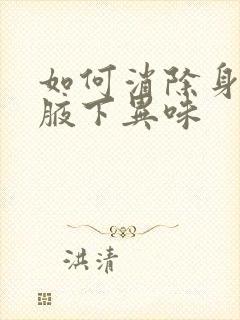 如何消除身
腋下異味
洪清